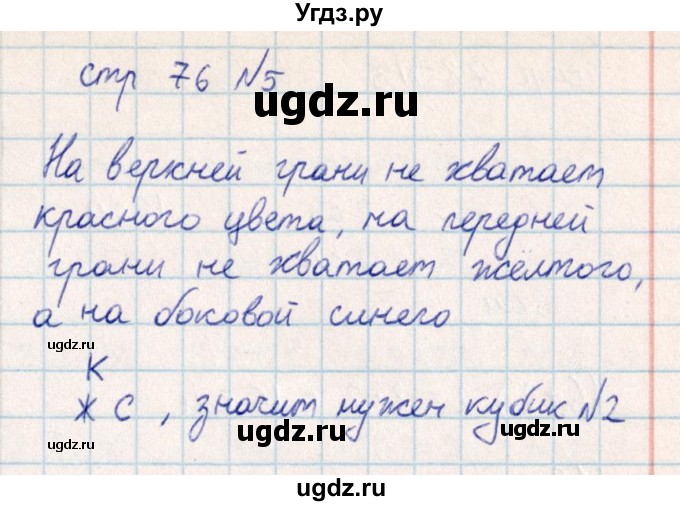 Угдз.ру
стр 76 №5
ugdz.ru
На верхней грани не хватает
красного цвета, на передней
грани не хватает жёлтого,
а на боковой синего
ugdz.ru
ugdz.ru
К
Ж С , значит нужен кубик №2
ugdz.ru
ugdz.ru
ugdz.ru
ugdz.ru